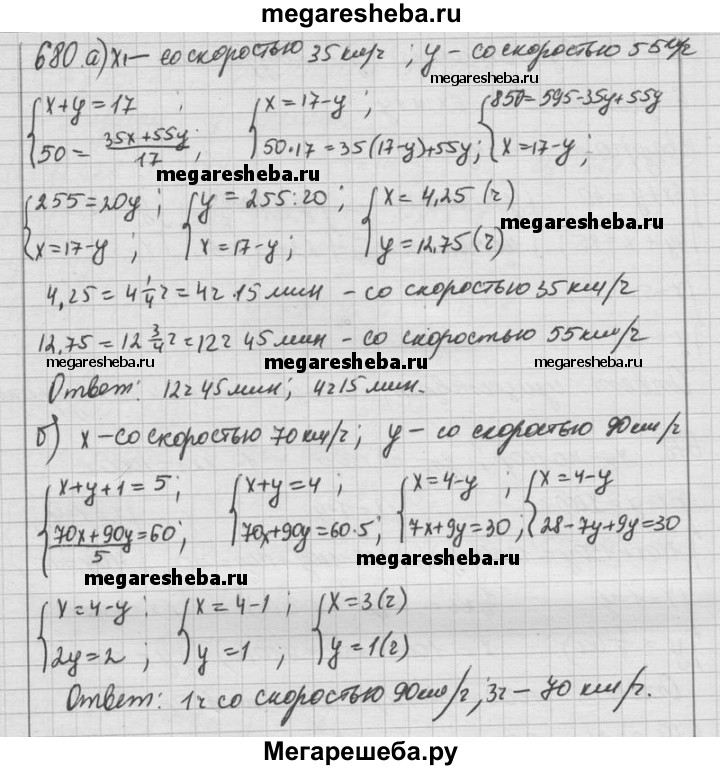 megaresheba.ru
680. а) x – со скоростью 35 км/ч ; y – со скоростью 55 км/ч
megaresheba.ru
{ x+y=17 ; { x=17-y ; { 850=595-35y+55y
{ 50= (35x+55y)/17 ; { 50·17=35(17-y)+55y ; { x=17-y ;
megaresheba.ru
{ 255=20y ; { y=255:20 ; { x=4,25 (ч)
{ x=17-y ; { x=17-y ; { y=12,75 (ч)
megaresheba.ru
4,25=4 1/4 ч=4ч 15 мин – со скоростью 35 км/ч
12,75=12 3/4 ч=12ч 45 мин – со скоростью 55 км/ч
megaresheba.ru megaresheba.ru megaresheba.ru
Ответ: 12ч 45 мин; 4ч 15 мин.
б) x – со скоростью 70 км/ч; y – со скоростью 90 км/ч
{ x+y+1=5 ; { x+y=4 ; { x=4-y ; { x=4-y
{ (70x+90y)/5=60 ; { 70x+90y=60·5 ; { 7x+9y=30 ; { 28-7y+9y=30
megaresheba.ru megaresheba.ru
{ x=4-y ; { x=4-1 ; { x=3 (ч)
{ 2y=2 ; { y=1 ; { y=1 (ч)
Ответ: 1ч со скоростью 90 км/ч, 3ч – 70 км/ч.
Мегарешеба.ру